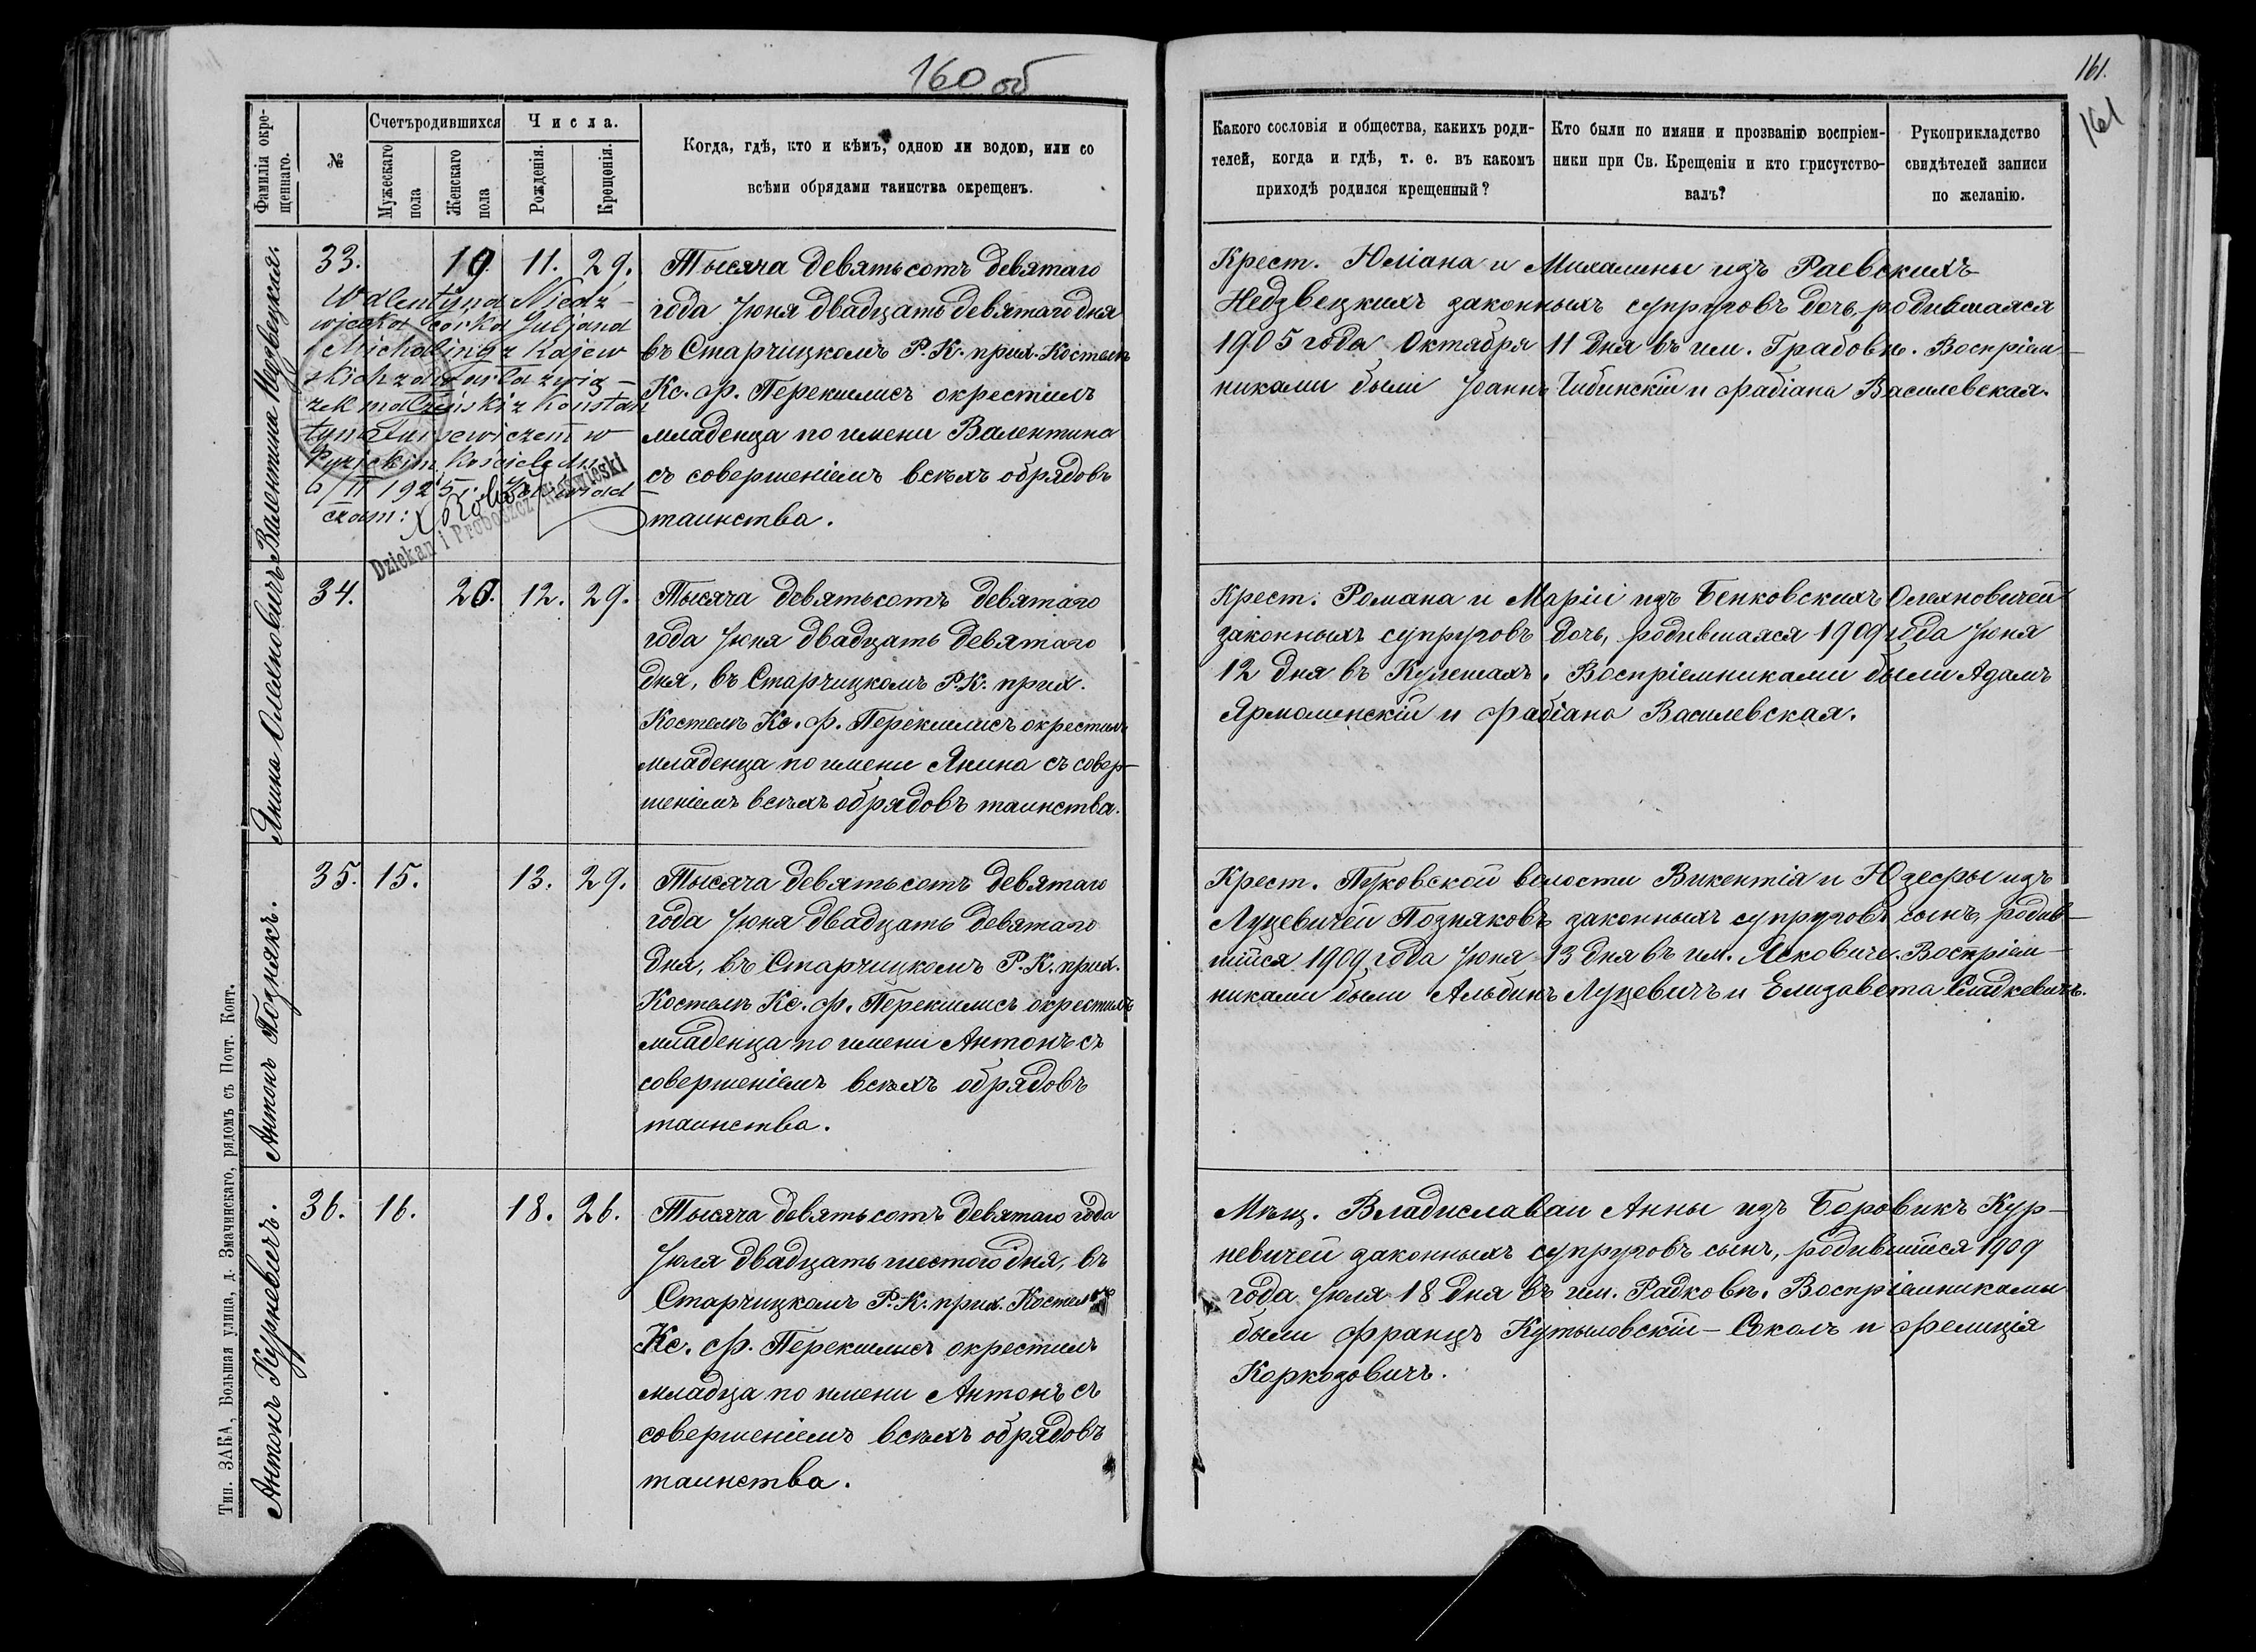 160 об
Фамилія окре-
щеннаго.
№
Счетъ родившихся
Мужескаго
пола
Женскаго
пола
Числа.
Рожденія.
Крещенія.
Когда, гдѣ, кто и кѣмъ, одною ли водою, или со
всѣми обрядами таинства окрещенъ.
Валентина Недзвецкая.
33. 19. 11. 29.
Walentyna Niedź-
wiecka córka Juljana
i Michaliny z Rajew
skich zawarła zwią-
zek małżeński z Konstan
tym w
kościele dn.
6/II 1925 r.
czam:
Dziekan i Proboszcz Nieświeski
Тысяча девятьсотъ девятаго
года Іюня двадцать девятаго дня
въ Старчицкомъ Р. К. прих. Костелѣ
Кс. Ф. Перекшлисъ окрестилъ
младенца по имени Валентина
съ совершеніемъ всѣхъ обрядовъ
таинства.
Янина Олехновичъ
34. 20. 12. 29.
Тысяча девятьсотъ девятаго
года Іюня двадцать девятаго
дня, въ Старчицкомъ Р. К. прих.
Костелѣ Кс. Ф. Перекшлисъ окрестилъ
младенца по имени Янина съ совер-
шеніемъ всѣхъ обрядовъ таинства.
Антонъ Познякъ.
35. 15. 13. 29.
Тысяча девятьсотъ девятаго
года Іюня двадцать девятаго
дня, въ Старчицкомъ Р. К. прих.
Костелѣ Кс. Ф. Перекшлисъ окрестилъ
младенца по имени Антонъ съ
совершеніемъ всѣхъ обрядовъ
таинства.
Антонъ Курневичъ.
36. 16. 18. 26.
Тысяча девятьсотъ девятаго года
Іюля двадцать шестого дня, въ
Старчицкомъ Р. К. прих. Костелѣ
Кс. Ф. Перекшлисъ окрестилъ
младца по имени Антонъ съ
совершеніемъ всѣхъ обрядовъ
таинства.
Тип. ЗАКА, Большая улица, д. Змачинскаго, рядомъ съ Почт. Конт.
161.
161
Какого сословія и общества, какихъ роди-
телей, когда и гдѣ, т. е. въ какомъ
приходѣ родился крещенный?
Кто были по имяни и прозванію воспріем-
ники при Св. Крещеніи и кто присутство-
валъ?
Рукоприкладство
свидѣтелей записи
по желанію.
Крест. Юліана и Михалины изъ Раевскихъ
Недзвецкихъ законныхъ супруговъ дочь, родившаяся
1905 года Октября 11 дня въ им. Грабовѣ. Воспріем-
никами были Іоаннъ Чибинскій и Фабіана Василевская.
Крест. Романа и Маріи изъ Бенковскихъ Олехновичей
законныхъ супруговъ дочь, родившаяся 1909 года Іюня
12 дня въ Кулешахъ. Воспріемниками были Адамъ
Ярмолинскій и Фабіана Василевская.
Крест. Пуковской волости Викентія и Юзефы изъ
Луцевичей Позняковъ законныхъ супруговъ сынъ, родив-
шійся 1909 года Іюня 13 дня въ им. Ясковичи. Воспріем-
никами были Альбинъ Луцевичъ и Елизавета Сладкевичъ.
Мѣщ. Владислава и Анны изъ Боровикъ Кур-
невичей законныхъ супруговъ сынъ, родившійся 1909
года Іюля 18 дня въ им. Радковѣ. Воспріемниками
были Францъ Кутыловскій-Соколъ и Фелиція
Коркозовичъ.